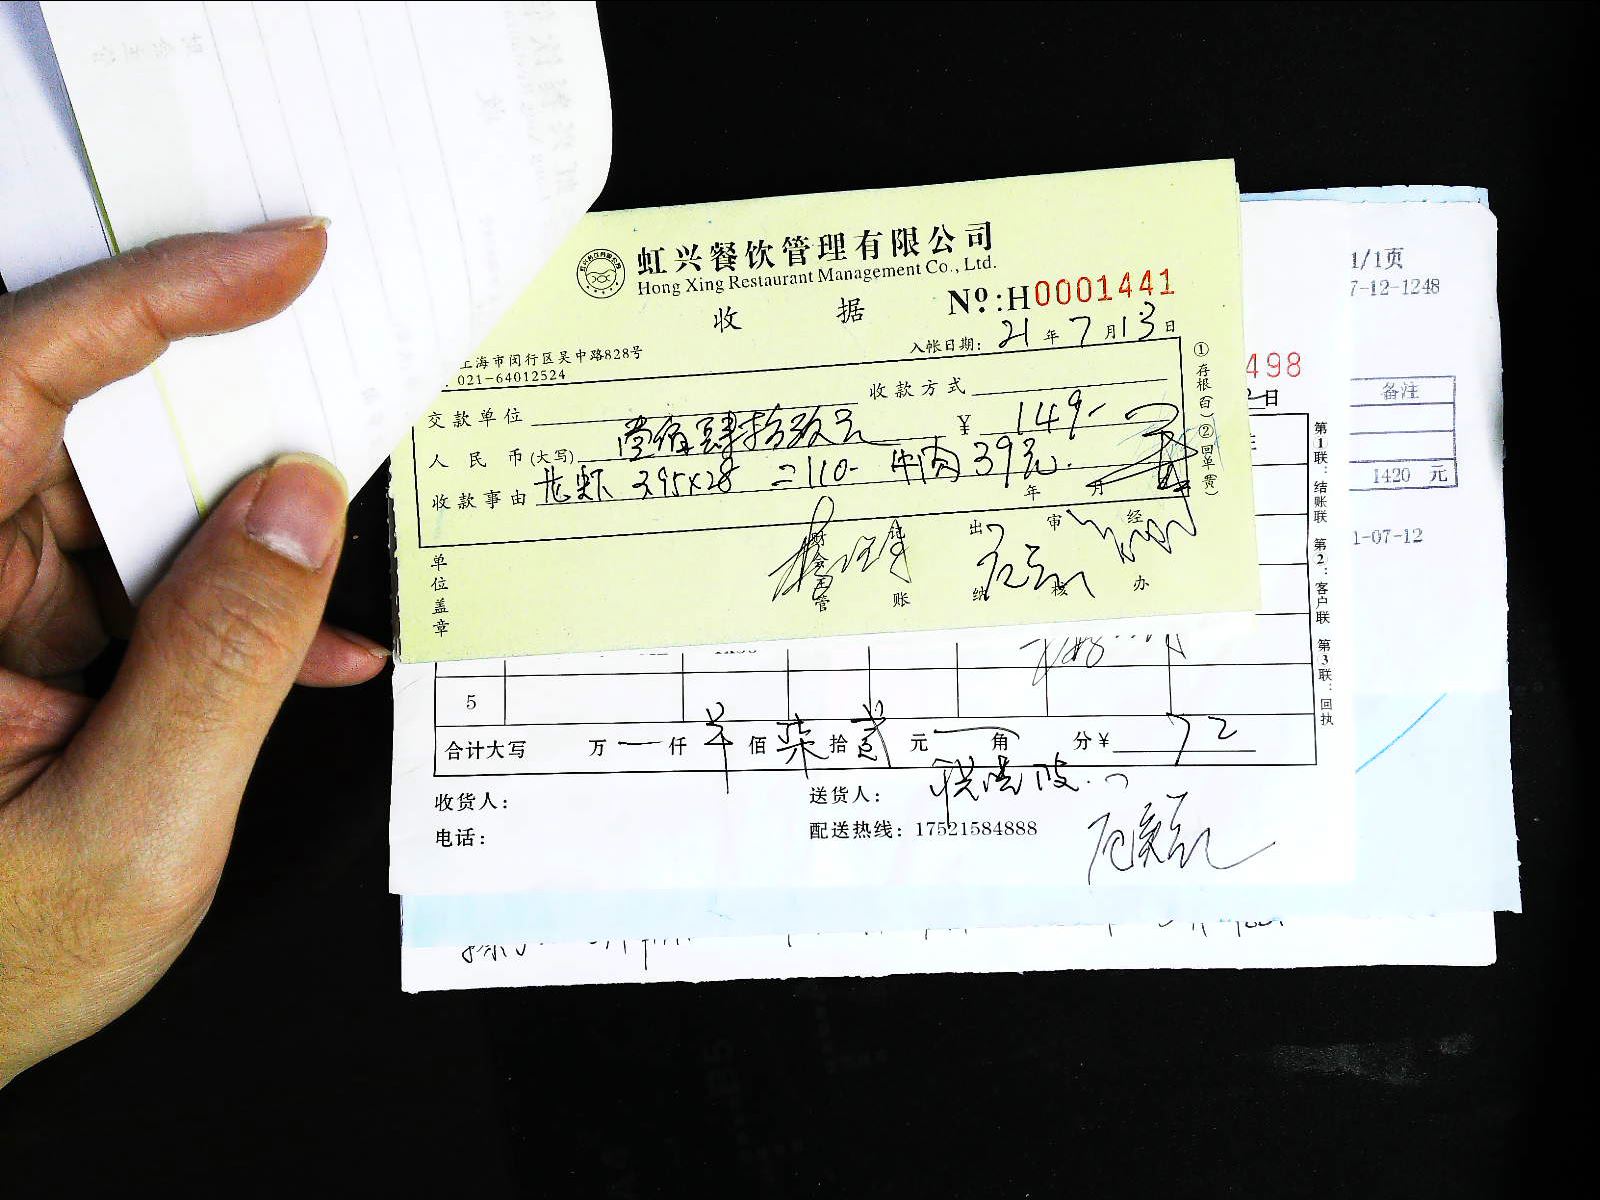 虹兴餐饮管理有限公司
Hong Xing Restaurant Management Co., Ltd.
收 据 Nº:H0001441
上海市闵行区吴中路828号 入帐日期: 21 年 7 月 13 日
021-64012524
交款单位 收款方式
人民币(大写) 壹佰肆拾玖元 ¥ 149-
收款事由 龙虾 3.95×28 =110- 牛肉 39元.
年 月
单位盖章 财会主管 记账 出纳 审核 经办
①存根(白) ②回单(黄)
1/1页
7-12-1248
498
日
备注
1420 元
1-07-12
5
合计大写 万 仟 佰 柒 拾 贰 元 角 分¥ 72
收货人: 送货人:
电话: 配送热线: 17521584888
第1联:结账联 第2:客户联 第3联:回执